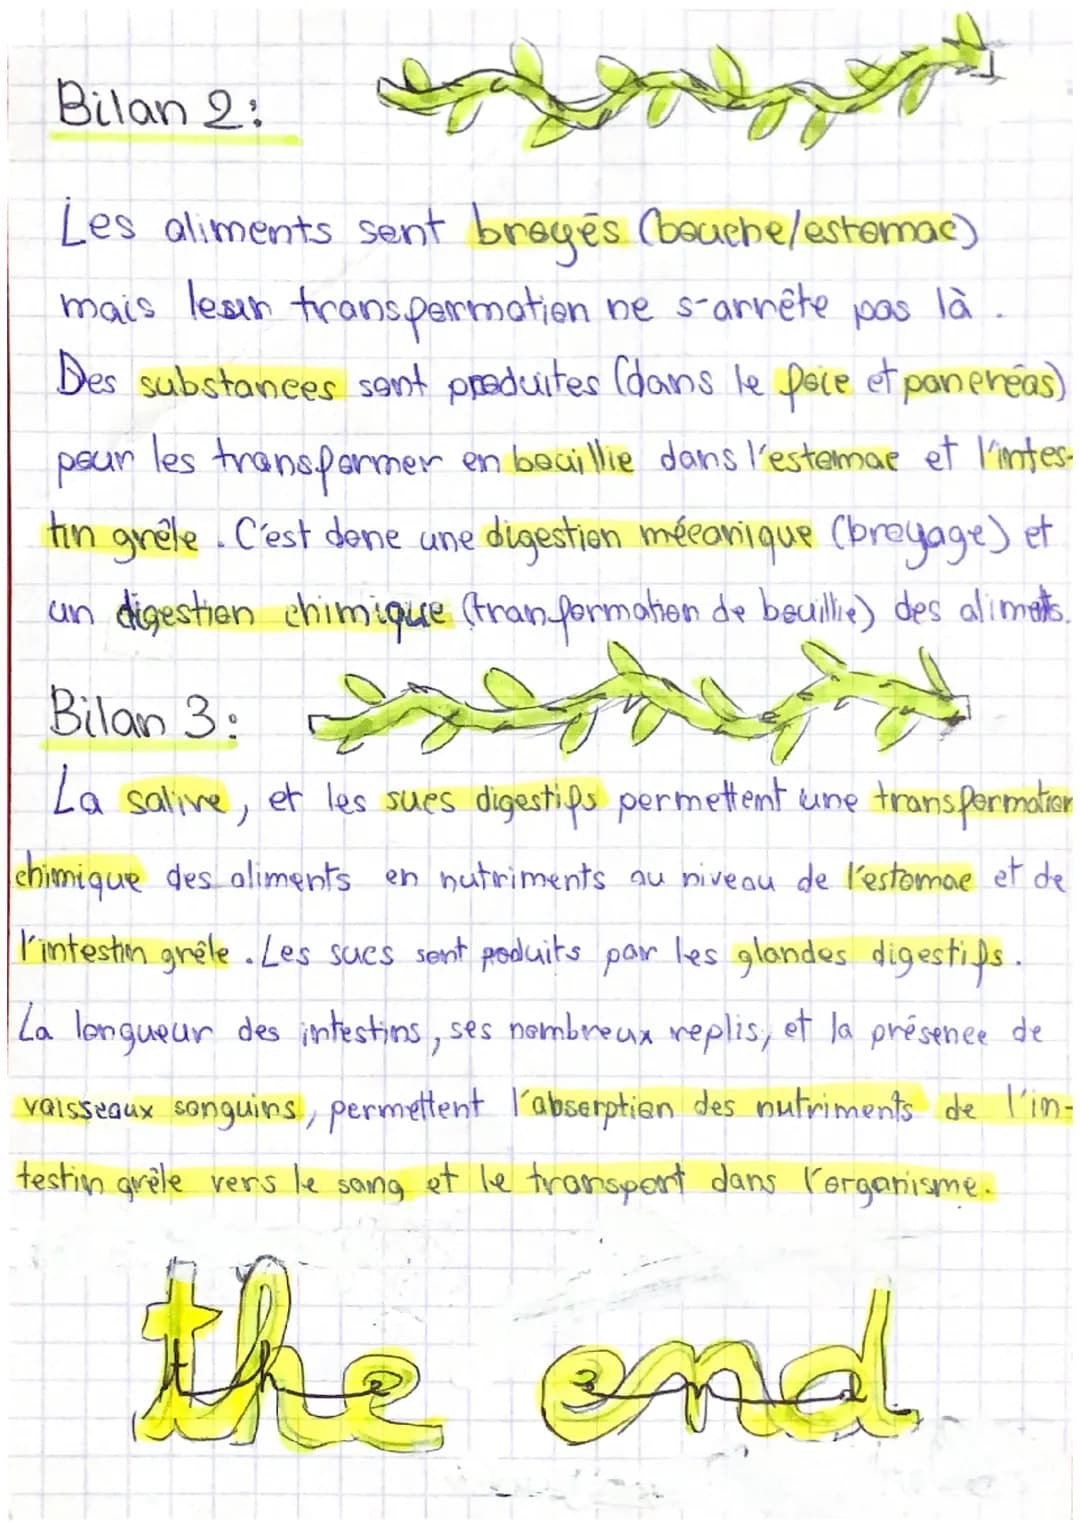 Bilan 2:
Les aliments sont broyés (bouche/estomac)
mais leur transformation ne s'arrête pas là.
Des substances sont produites (dans le foie et pancréas)
pour les transformer en bouillie dans l'estomac et l'intes-
tin grêle. C'est donc une digestion mécanique (broyage) et
un digestion chimique (tranformation de bouillie) des alimets.
Bilan 3:
La salive, et les sucs digestifs permettent une transformation
chimique des aliments en nutriments au niveau de l'estomac et de
l'intestin grêle. Les sucs sont poduits par les glandes digestifs.
La longueur des intestins, ses nombreux replis, et la présence de
vaisseaux sanguins, permettent l'absorption des nutriments de l'in-
testin grêle vers le sang et le transport dans l'organisme.
the end